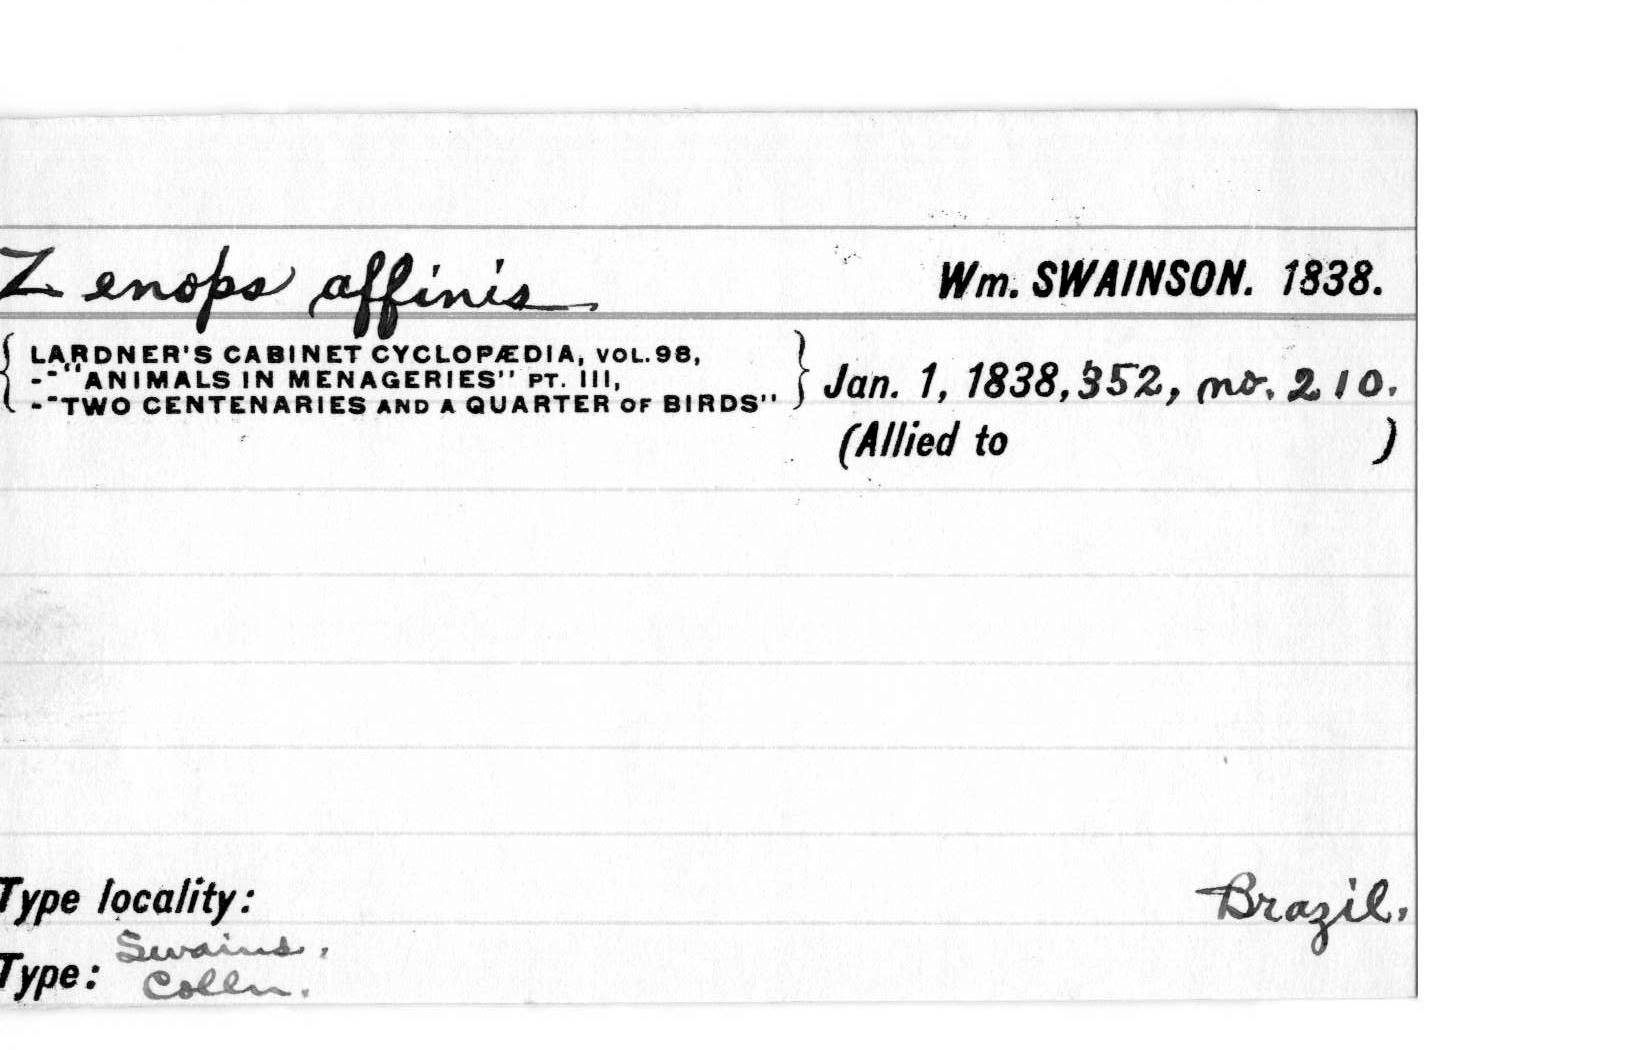 Zenops affinis Wm. SWAINSON. 1838.
LARDNER'S CABINET CYCLOPÆDIA, VOL. 98,
-- "ANIMALS IN MENAGERIES" PT. III,
-- "TWO CENTENARIES AND A QUARTER OF BIRDS"
Jan. 1, 1838, 352, no. 210.
(Allied to )
Type locality: Brazil.
Type: Swains.
Colln.